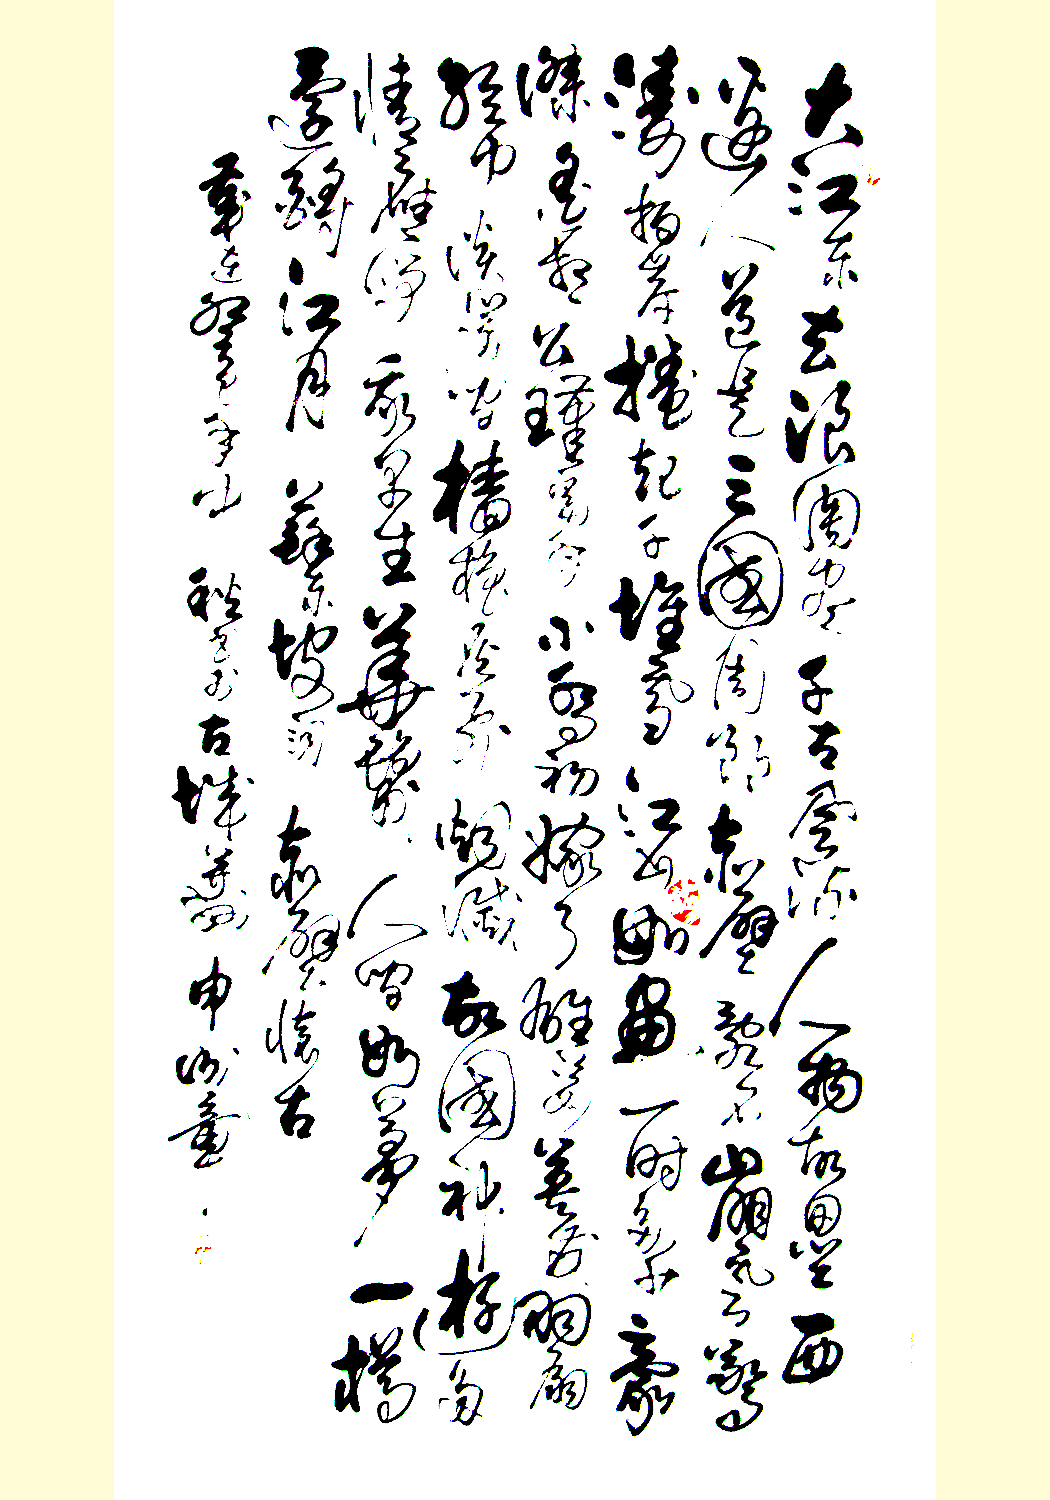 大江东去浪淘尽千古风流人物故垒西
边人道是三国周郎赤壁乱石崩云惊
涛拍岸捲起千堆雪江山如画一时多少豪
杰遥想公瑾当年小乔初嫁了雄姿英发羽扇
纶巾谈笑间樯橹灰飞烟灭故国神游多
情应笑我早生华发人间如梦一樽
还酹江月苏东坡词赤壁怀古
古城 申